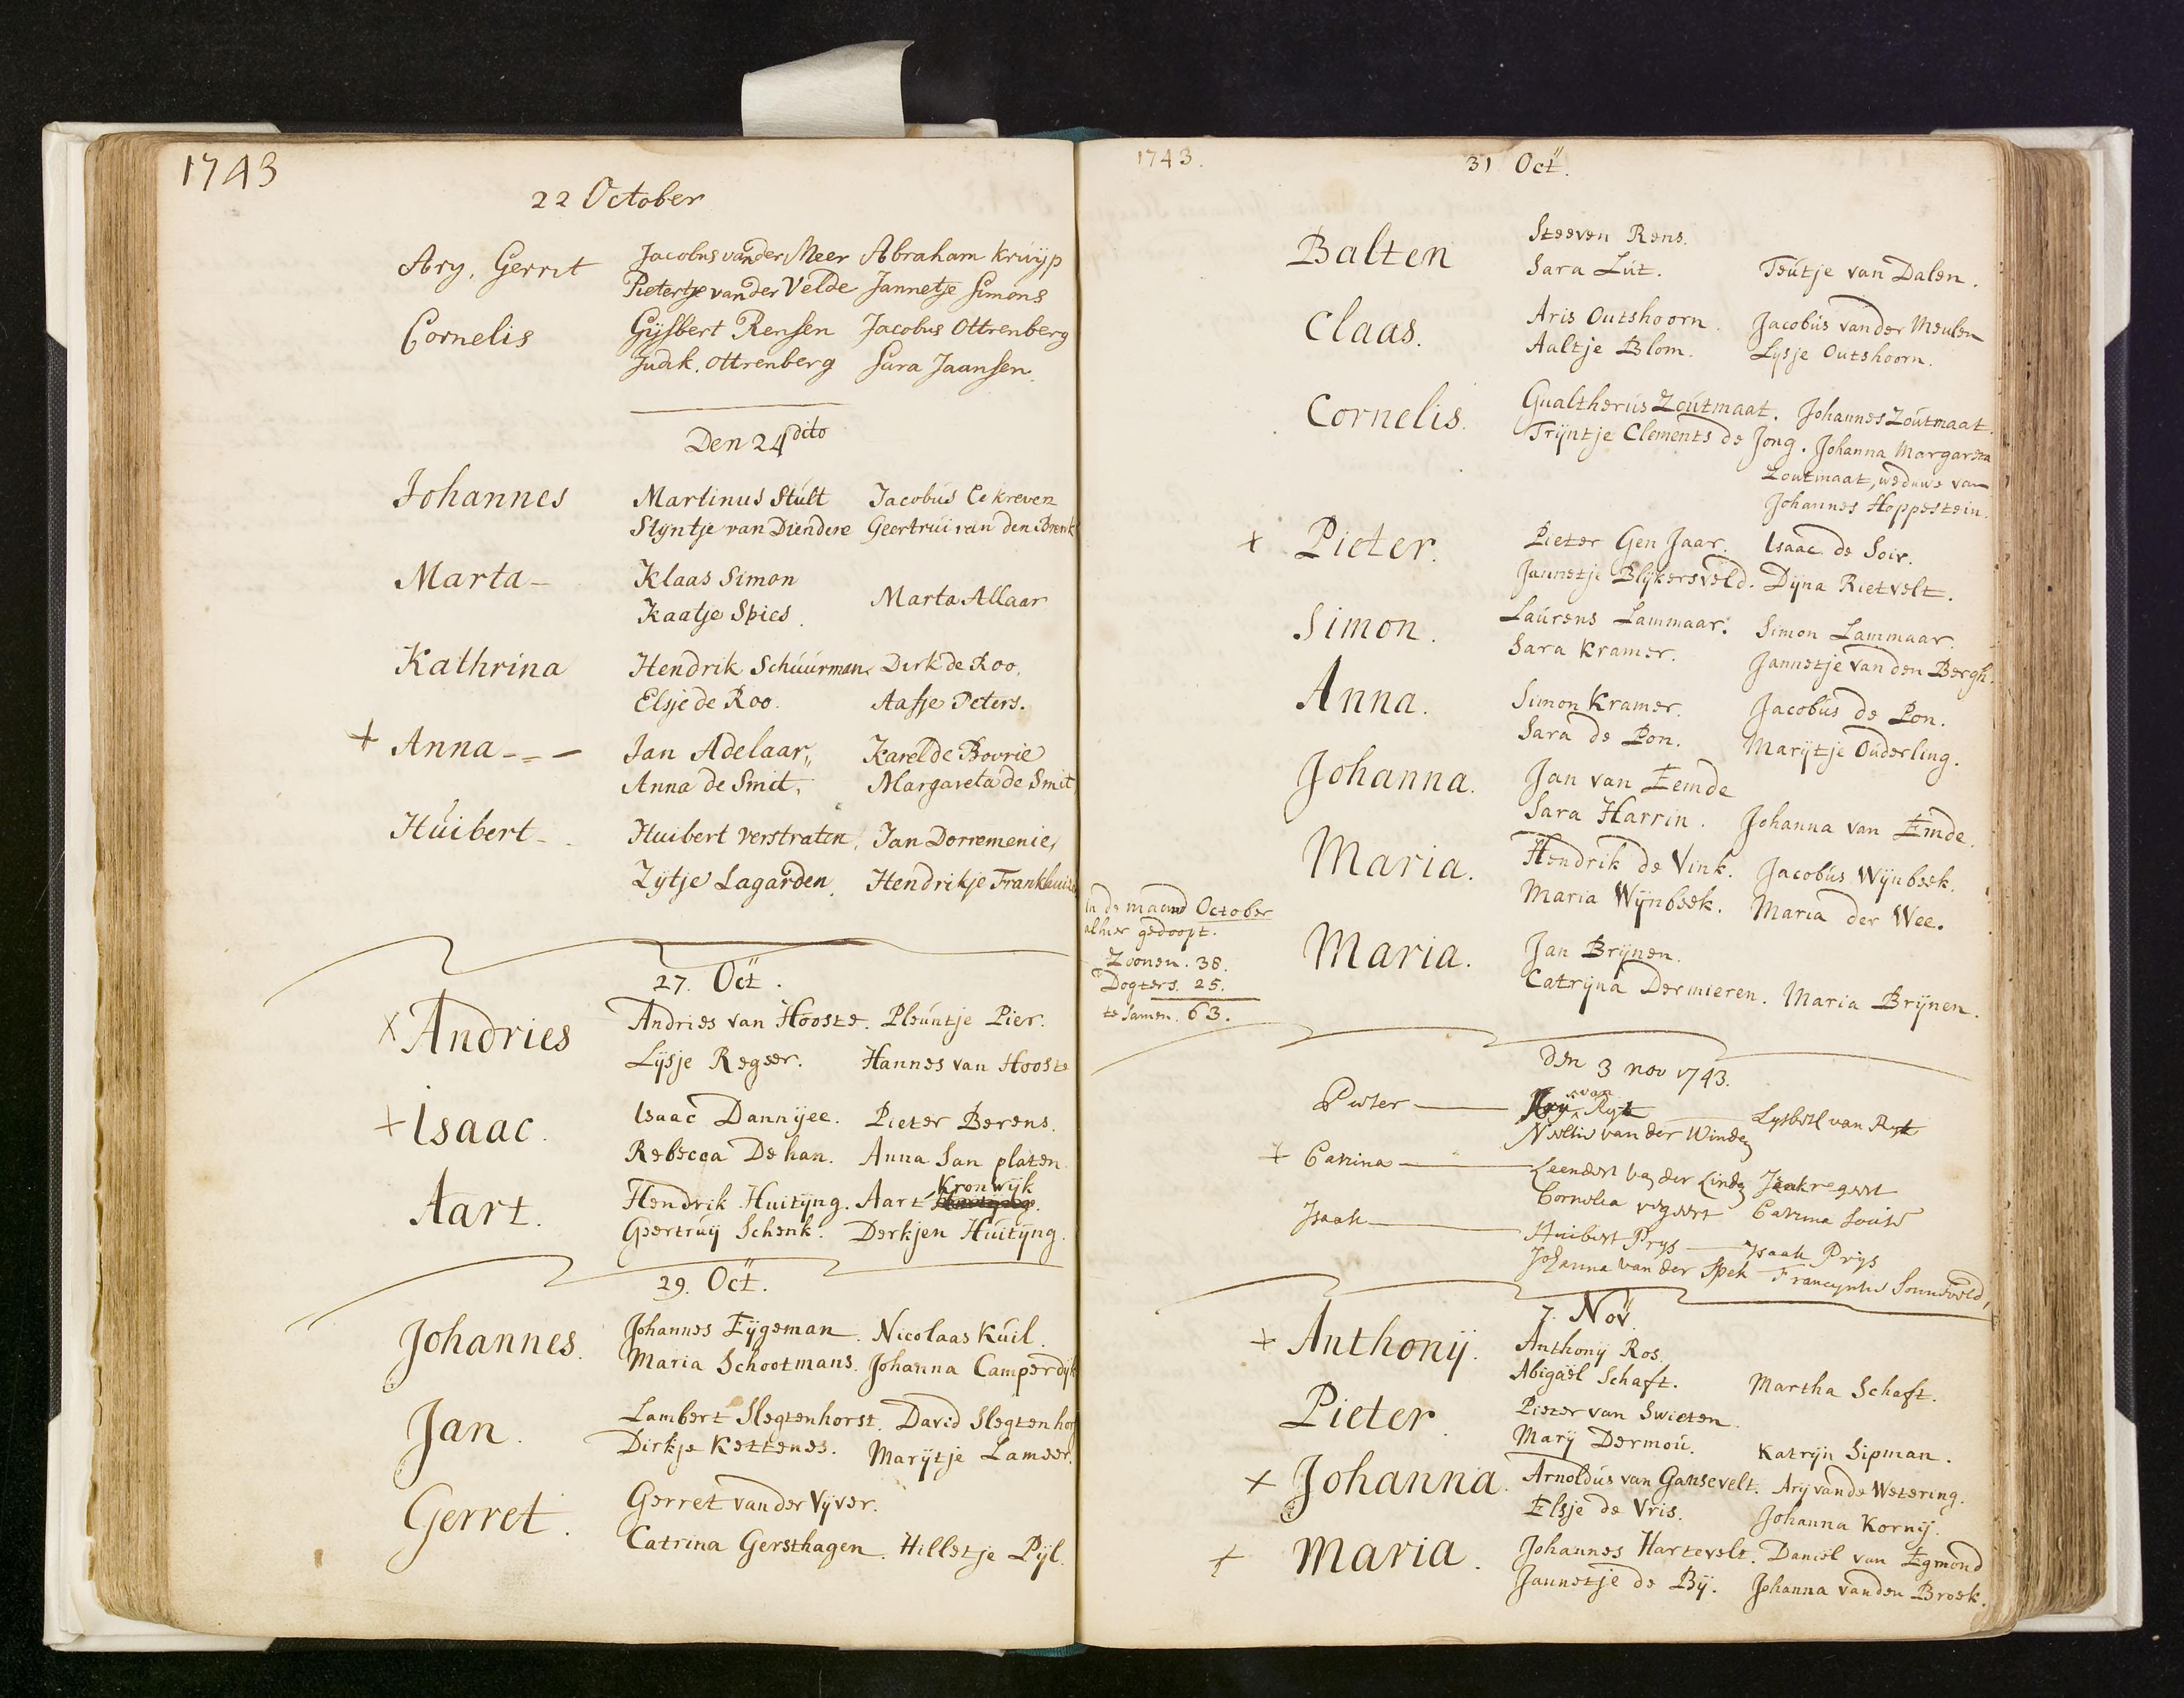 1743
22 October
Ary, Gerrit Jacobus vander Meer Abraham Kruyp
Pietertje vander Velde Jannetje Simons
Cornelis Gysbert Rensen Jacobus Ottrenberg
Judik. Ottrenberg Sara Jaansen.
Den 24 dito
Johannes Martinus Stult Jacobus
Styntje van Diendere Geertrui van den Brenk
Marta - Klaas Simon
Kaatje Spies. Marta Allaar
Kathrina Hendrik Schuurman Dirk de Roo.
Elsje de Roo. Aafje Peters.
+ Anna - - - Jan Adelaar,, Karel de Bovrie
Anna de Smit, Margareta de Smit
Huibert - Huibert Verstraten, Jan Dorremenie,
Zytje Lagarden. Hendrikje Frankhuize
27. Oct.
x Andries Andries van Hooste. Pleuntje Pier.
Lysje Regeer. Hannes van Hooste
+ Isaac. Isaac Dannyee. Pieter Berens.
Rebecca De han. Anna San platen.
Kronwyk
Aart. Hendrik Huityng. Aart
Geertruy Schenk. Derkjen Huityng.
29. Oct.
Johannes. Johannes Eygeman. Nicolaas Kuil.
Maria Schootmans. Johanna Camperdyk
Jan. Lambert Slegtenhorst. David Slegtenhor
Dirkje Kettenes. Marytje Lameer.
Gerret. Gerret vander Vyver.
Catrina Gersthagen. Hilletje Pyl.
1743.
31 Oct.
Balten Steeven Rens.
Sara Lut. Teutje van Dalen.
Claas. Aris Outshoorn. Jacobus vander Meulen
Aaltje Blom. Lysje Outshoorn.
Cornelis. Gualtherus Zoutmaat. Johannes Zoutmaat.
Tryntje Clements de Jong. Johanna Margareta
Zoutmaat, weduwe van
Johannes Hoppestein.
x Pieter. Pieter Gen Jaar. Isaac de Soir.
Jannetje Blykersveld. Dyna Rietvelt.
Simon. Laurens Lammaar. Simon Lammaar.
Sara Kramer. Jannetje van den Bergh.
Anna. Simon Kramer. Jacobus de Pon.
Sara de Pon. Marytje Ouderling.
Johanna. Jan van Eemde
Sara Harrin. Johanna van Emde.
Maria. Hendrik de Vink. Jacobus Wynbeek.
Maria Wynbeek. Maria der Wee.
In de maand October
alhier gedoopt.
Zoonen. 38.
Dogters. 25.
te Samen. 63.
Maria. Jan Brynen.
Catryna Dermieren. Maria Brynen.
den 3 nov 1743.
van
Pieter Ryk Lysbeth van Ryk
Neeltie van der Winden
+ Catrina Leendert van der Linden Isaak regeert
Cornelia regeert Catrina Louise
Isaak Huibert Prys Isaak Prys
Johanna van der Spek Francyntie Sonneveld,
7. Nov.
+ Anthony. Anthony Ros.
Abigaël Schaft. Martha Schaft.
Pieter. Pieter van Swieten.
Mary Dermou. Katryn Sipman.
x Johanna. Arnoldus van Gansevelt. Ary vande Wetering.
Elsje de Vris. Johanna Korny.
+ Maria. Johannes Hartevelt. Daniël van Egmond
Jannetje de By. Johanna vanden Broek.